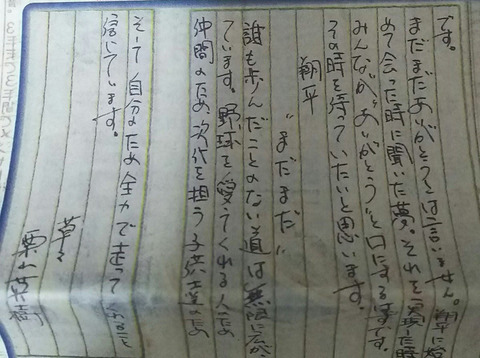 です。
まだまだありがとうとは言いません。翔平に始
めて会った時に聞いた夢。それを実現した時
みんなが“ありがとう”と口にするはずです。
その時を待っていたいと思います。
翔平
“まだまだ”
誰も歩んだことのない道は無限に広が
ています。野球を愛してくれる人のため
仲間のため、次代を担う子供達のため
そして自分のため全力で走ってくれると
信じています。
草々
栗山英樹